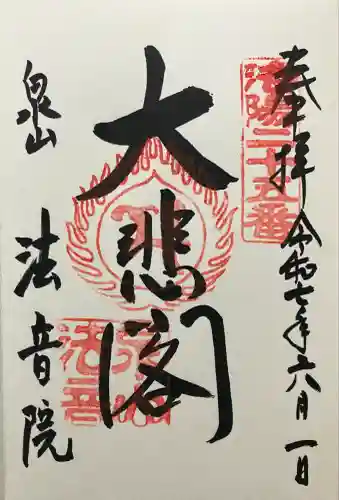 奉拝 令和七年六月一日
洛陽二十五番
大悲閣
泉山 法音院